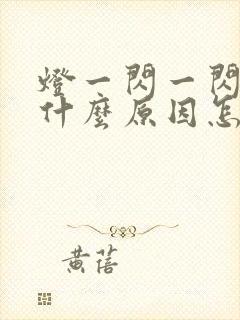 燈一閃一閃
什麼原因怎
黃蓓